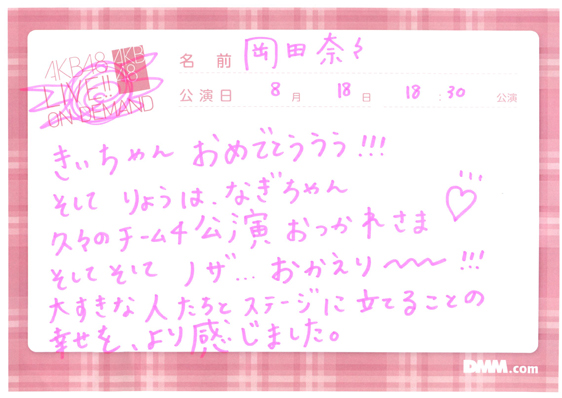 AKB48
LIVE!!
ON DEMAND
AKB
48
名前 岡田奈々
公演日 8月 18日 18:30 公演
きぃちゃん おめでとううう!!!
そして りょうは、なぎちゃん
久々のチーム4公演 おつかれさま♡
そしてそして ノザ… おかえり〜〜!!!
大すきな人たちとステージに立てることの
幸せを、より感じました。
DMM.com